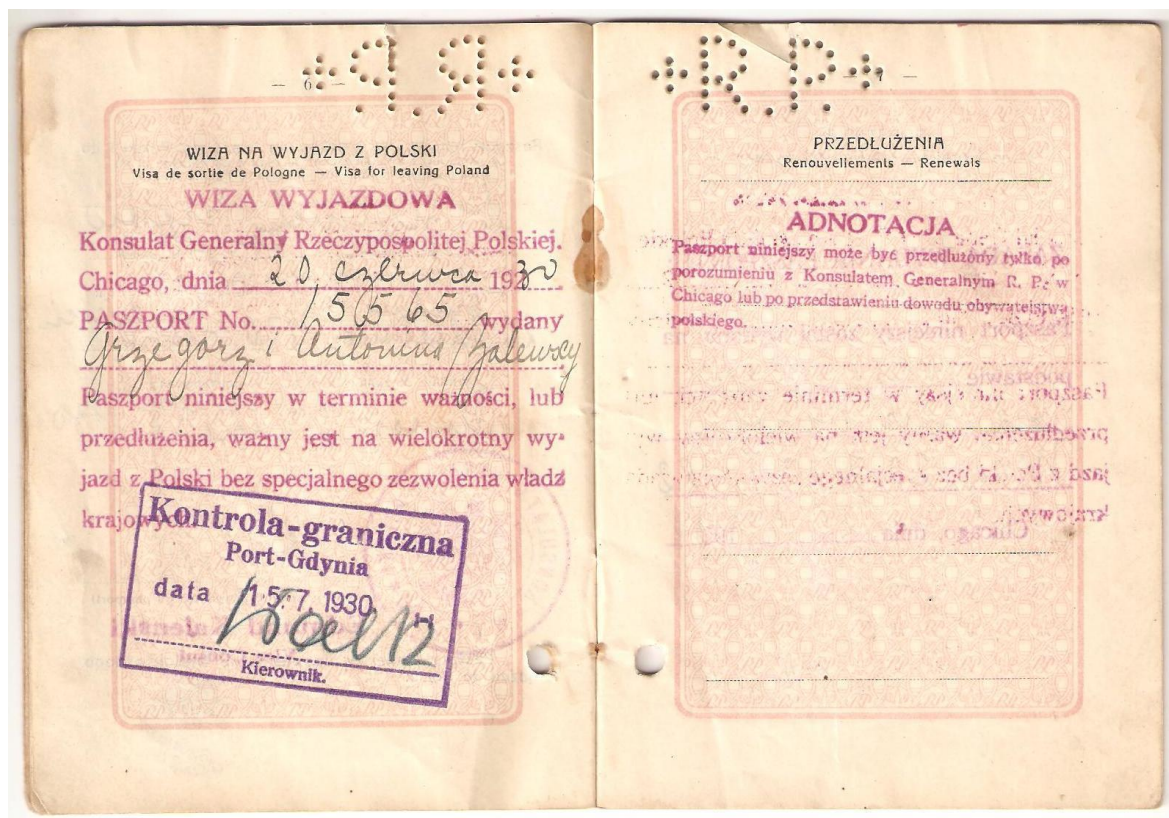 P.R
— 6 —
WIZA NA WYJAZD Z POLSKI
Visa de sortie de Pologne — Visa for leaving Poland
WIZA WYJAZDOWA
Konsulat Generalny Rzeczypospolitej Polskiej.
Chicago, dnia 20, czerwca 1930
PASZPORT No. 15565 wydany
Grzegorz i Antonina Zalewscy
Paszport niniejszy w terminie ważności, lub
przedłużenia, ważny jest na wielokrotny wy-
jazd z Polski bez specjalnego zezwolenia władz
krajowych.
Kontrola-graniczna
Port-Gdynia
data 15.7.1930
Kierownik.
R.P.
— 7 —
PRZEDŁUŻENIA
Renouvellements — Renewals
ADNOTACJA
Paszport niniejszy może być przedłużony tylko po
porozumieniu z Konsulatem Generalnym R. P. w
Chicago lub po przedstawieniu dowodu obywatelstwa
polskiego.